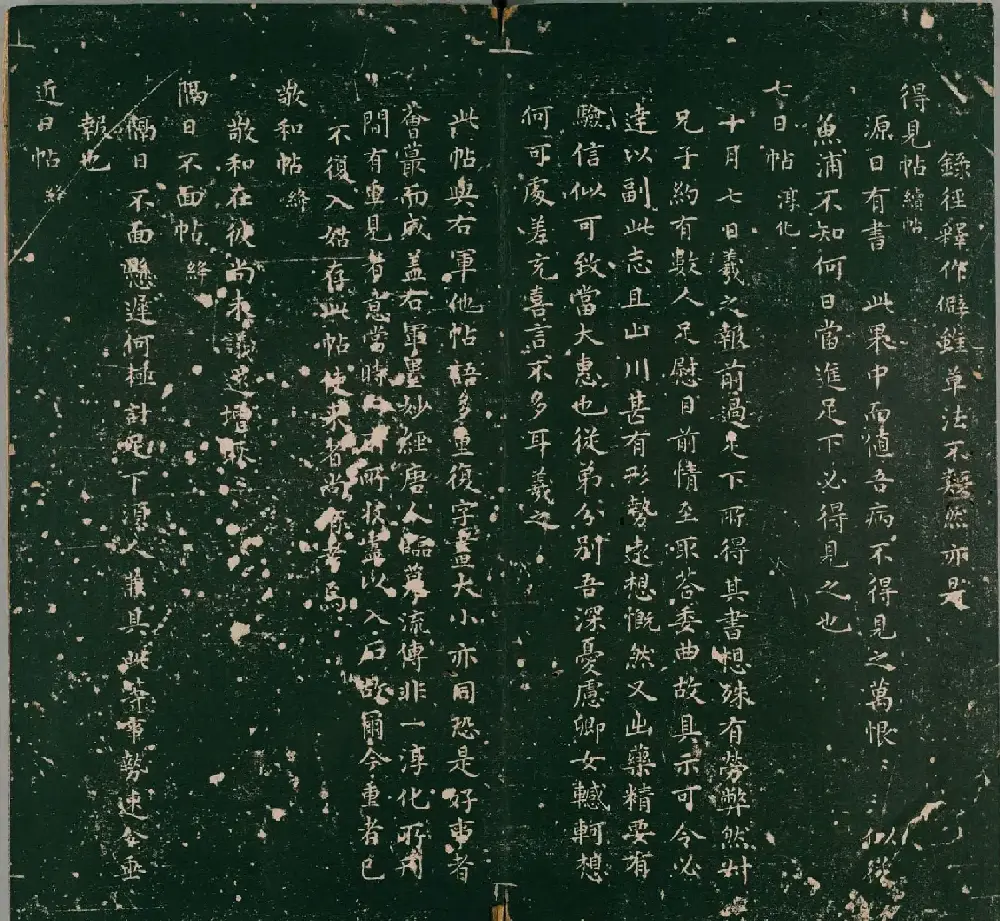 錄徑釋作僻雖草法不疑然亦是
得見帖續帖
源日有書 此果中而值吾病不得見之萬恨:: 似從
魚浦不知何日當進足下必得見之也
七日帖淳化
十月七日羲之報前過足下所得其書想殊有勞弊然叔
兄子約有數人足慰目前情至取答委曲故具示可令必
達以副此志且山川甚有形勢遠想慨然又出藥精要有
驗信似可致當大惠也從弟分別吾深憂慮卿女轗軻想
何可處差充喜言不多耳羲之
此帖與右軍他帖語多重復字畫大小亦同恐是好事者
蕃叢而成盖右軍墨妙經唐人臨摹流傳非一淳化所刋
間有重見者意當時 所 盡以入石故爾今重者已
不復入姑存此帖使來者尚有考焉
敬和帖絳
敬和在彼尚未議還增耿:
隔日不面帖絳
隔日不面懸遲何極計足下須人 具此 事勢速令垂
報也
近日帖絳